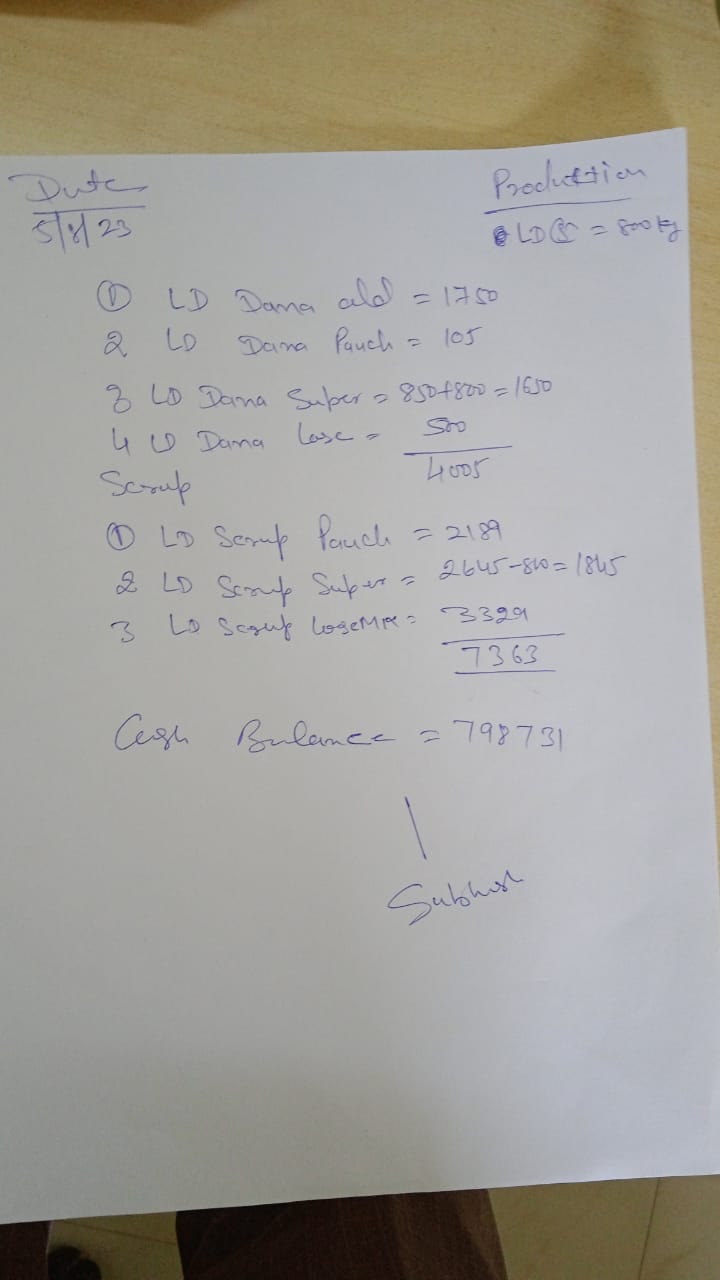 Date
5/8/23
Production
LD(S) = 800 kg
① LD Dana old = 1750
2 LD Dana Pauch = 105
3 LD Dana Super = 850+800 = 1650
4 LD Dana Lose = 500
4005
Scrup
① LD Scrup Pauch = 2189
2 LD Scrup Super = 2645-800 = 1845
3 LD Scrup Lose Mix = 3329
7363
Cash Balance = 798731
Subhash